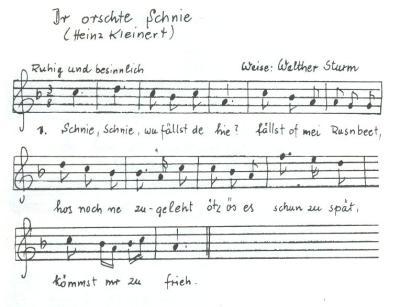 Dr orschte Schnie
(Heinz Kleinert)
Ruhig und besinnlich Weise: Walther Sturm
1. Schnie, Schnie, wu fällst de hie? fällst of mei Rusnbeet,
hos noch ne zu-geleht ötz ös es schun zu spät,
kömmst mr zu frieh.